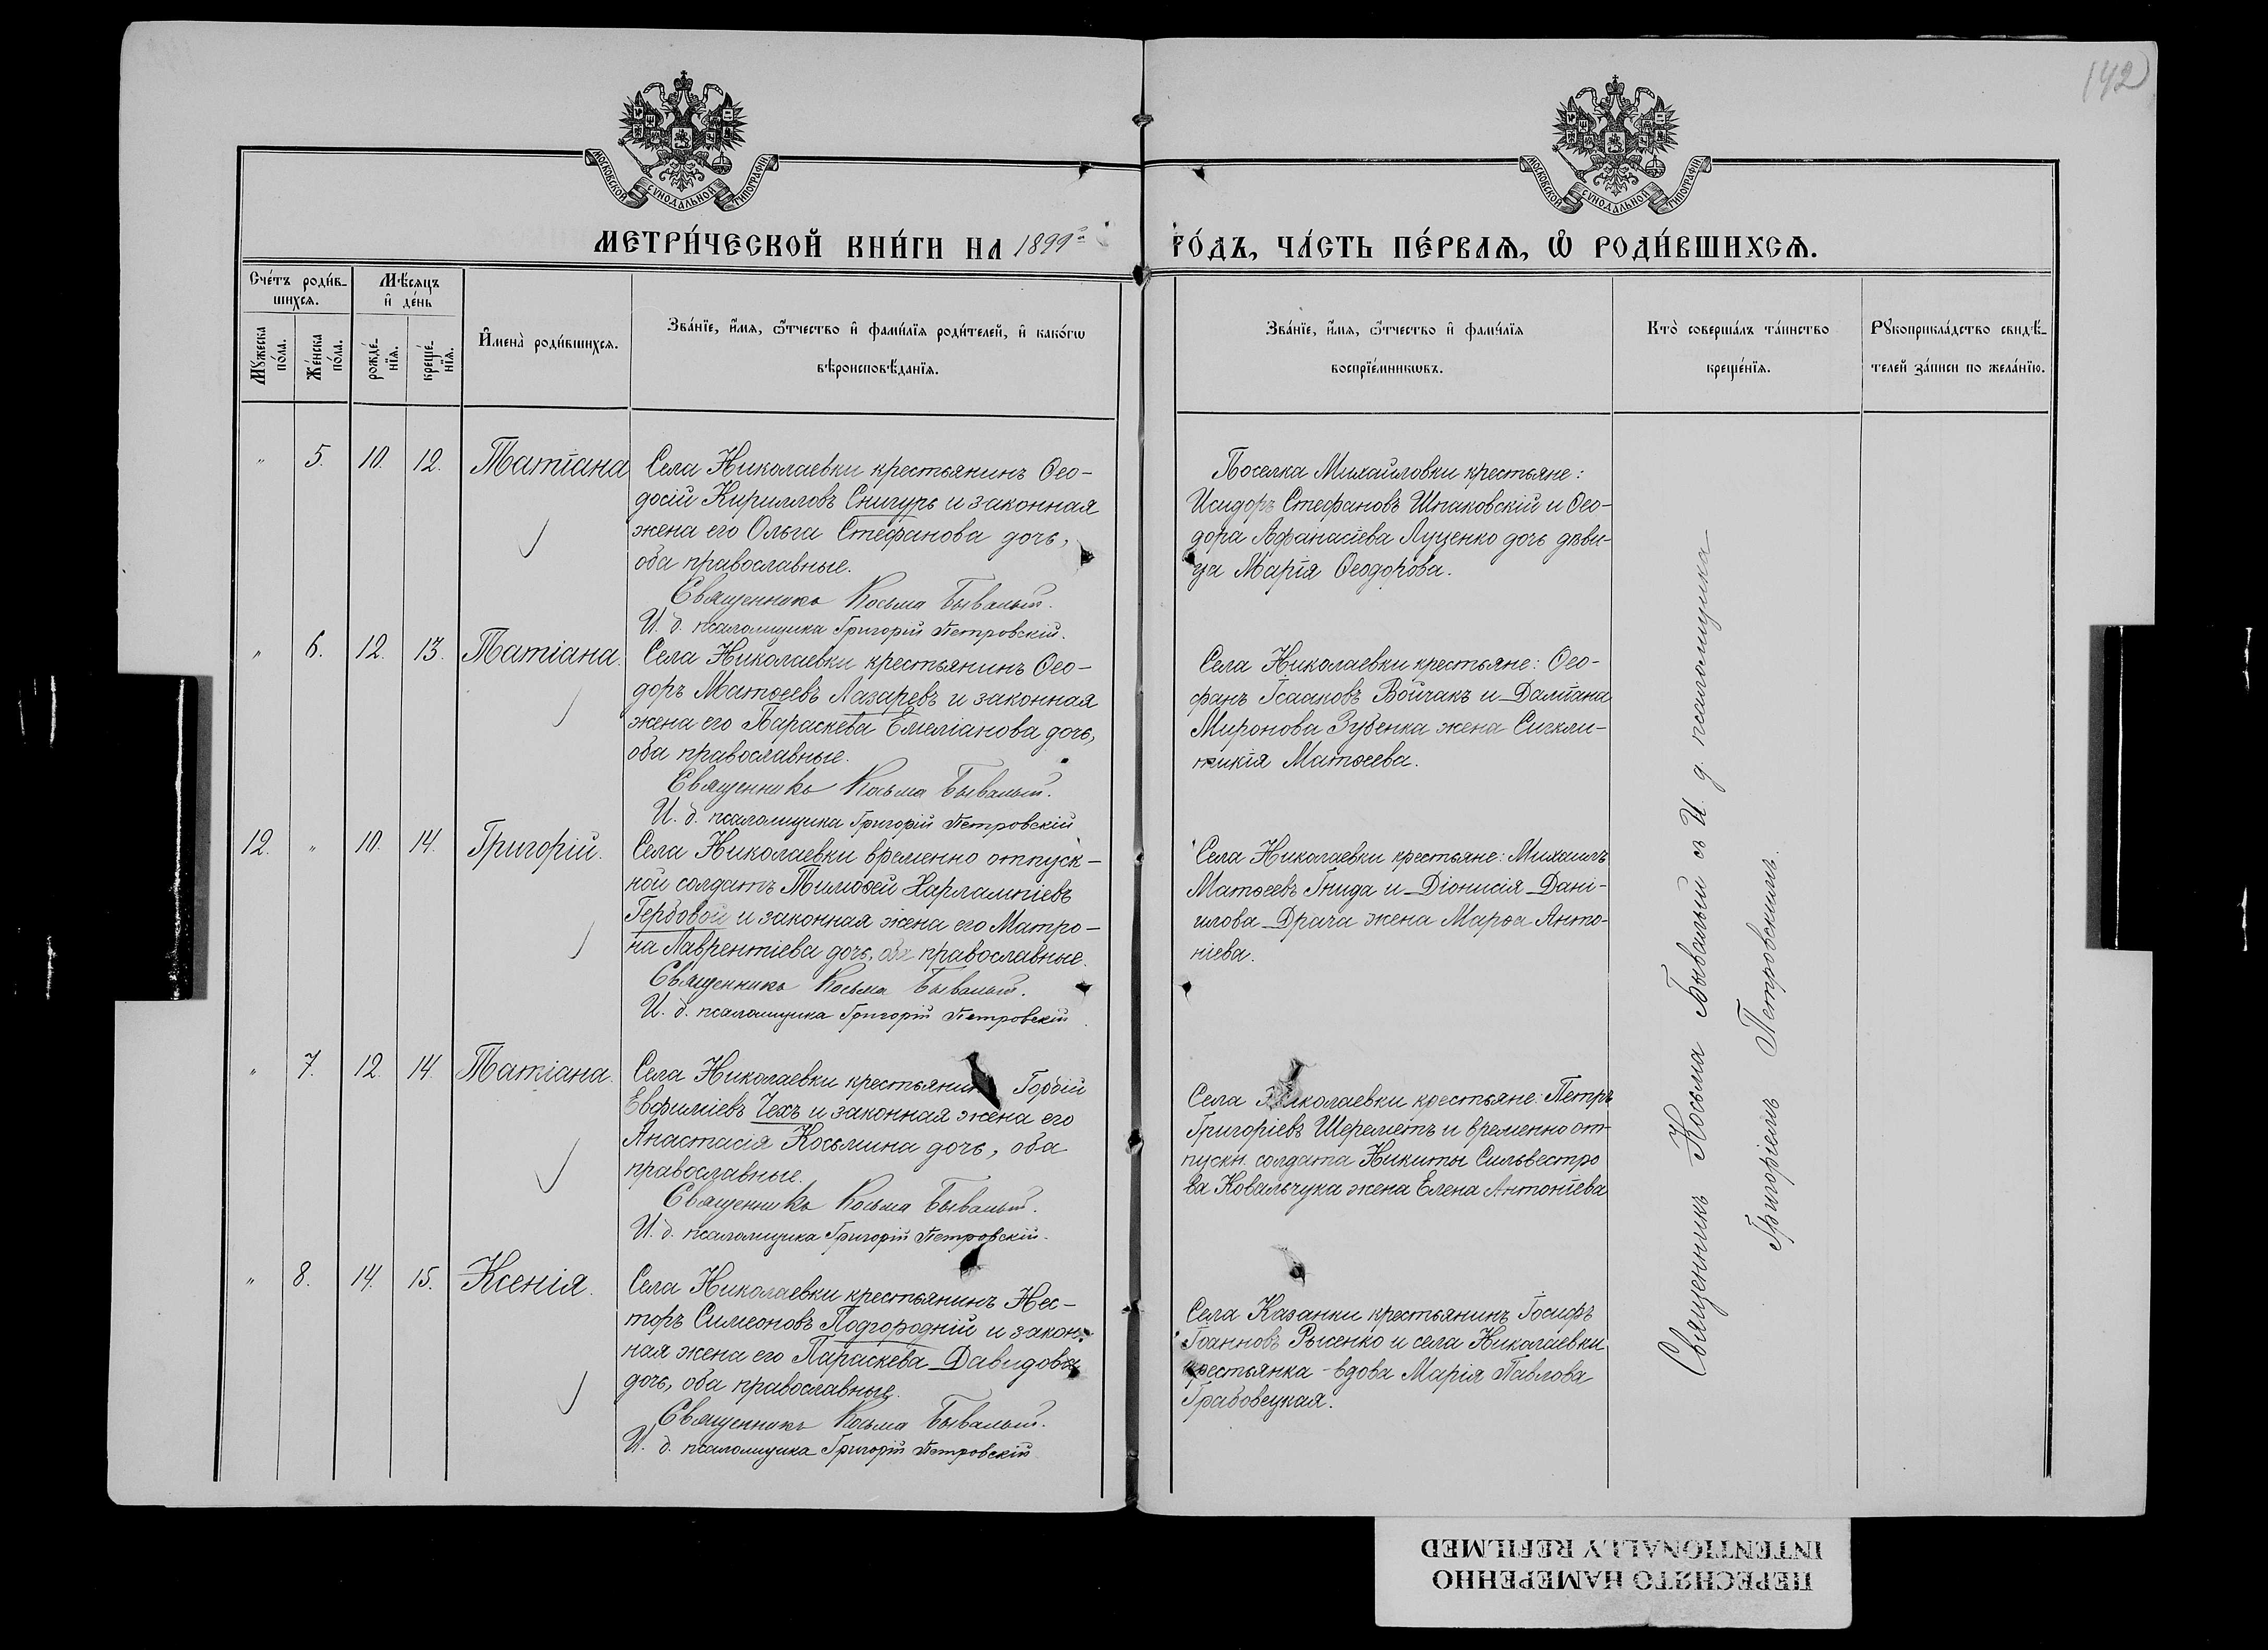 142
МОСКОВСКОЙ СѴНОДАЛЬНОЙ ТИПОГРАФІИ
МОСКОВСКОЙ СѴНОДАЛЬНОЙ ТИПОГРАФІИ
МЕТРИ́ЧЕСКОЙ КНИ́ГИ НА 1899й ГО́ДЪ, ЧА́СТЬ ПЕ́РВАѦ, Ѽ РОДИ́ВШИХСѦ.
Сче́тъ роди́в-
шихсѧ.
Мꙋ́жеска
по́ла.
Же́нска
по́ла.
Мѣ́сѧцъ
и҆ де́нь
рожде́-
нїѧ.
креще́-
нїѧ.
И҆мена̀ роди́вшихсѧ.
Зва́нїе, и҆́мѧ, ѻ҆́тчество и҆ фами́лїѧ роди́телей, и҆ како́гѡ
вѣроисповѣ́данїѧ.
Зва́нїе, и҆́мѧ, ѻ҆́тчество и҆ фами́лїѧ
воспрїе́мникѡвъ.
Кто̀ соверша́лъ та́инство
креще́нїѧ.
Рꙋкоприкла́дство свидѣ́-
телей за́писи по жела́нїю.
" 5. 10. 12. Татіана
Села Николаевки крестьянинъ Ѳео-
досій Кирилловъ Снигурь и законная
жена его Ольга Стефанова дочь,
оба православные.
Священникъ Косьма Бывалый.
И. д. псаломщика Григорій Петровскій.
Поселка Михайловки крестьяне:
Исидоръ Стефановъ Шпаковскій и Ѳео-
дора Аѳанасіева Луценко дочь дѣви-
ца Марія Ѳеодорова.
" 6. 12. 13. Татіана.
Села Николаевки крестьянинъ Ѳео-
доръ Матѳеевъ Лазаревъ и законная
жена его Параскева Емеліанова дочь,
оба православные.
Священникъ Косьма Бывалый.
И. д. псаломщика Григорій Петровскій
Села Николаевки крестьяне: Ѳео-
фанъ Ісааковъ Войчакъ и Даміана
Миронова Зубенка жена Сигкли-
тикія Матѳеева.
12. " 10. 14. Григорій.
Села Николаевки временно отпуск-
ной солдатъ Тимоѳей Харлампіевъ
Гербовой и законная жена его Матро-
на Лаврентіева дочь, оба православные.
Священникъ Косьма Бывалый.
И. д. псаломщика Григорій Петровскій
Села Николаевки крестьяне: Михаилъ
Матѳеевъ Гнида и Діонисія Дані-
илова Драча жена Марѳа Анто-
ніева.
" 7. 12. 14. Татіана.
Села Николаевки крестьянинъ Гордій
Евѳиміевъ Чехъ и законная жена его
Анастасія Косьмина дочь, оба
православные.
Священникъ Косьма Бывалый.
И. д. псаломщика Григорій Петровскій.
Села Николаевки крестьяне: Петръ
Григоріевъ Шереметъ и временно от-
пускн. солдата Никиты Сильвестро
ва Ковальчука жена Елена Антоніева
" 8. 14. 15. Ксенія.
Села Николаевки крестьянинъ Нес-
торъ Симеоновъ Подгородній и закон-
ная жена его Параскева Давидова
дочь, оба православные.
Священникъ Косьма Бывалый.
И. д. псаломщика Григорій Петровскій
Села Казанки крестьянинъ Іосифъ
Іоанновъ Рысенко и села Николаевки
крестьянка - вдова Марія Павлова
Грабовецкая.
Священникъ Косьма Бывалый съ И. д. псаломщика
Григоріемъ Петровскимъ.
ПЕРЕСНЯТО НАМЕРЕННО
INTENTIONALLY REFILMED